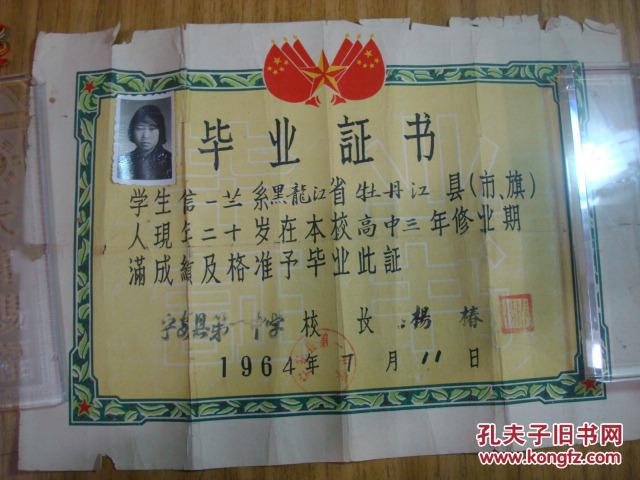 毕业証书
学生信一兰系黑龍江省牡丹江县(市、旗)
人現年二十岁在本校高中三年修业期
滿成績及格准予毕业此証
宁安县第一中学 校长 楊椿
1964年7月11日
孔夫子旧书网
www.kongfz.com